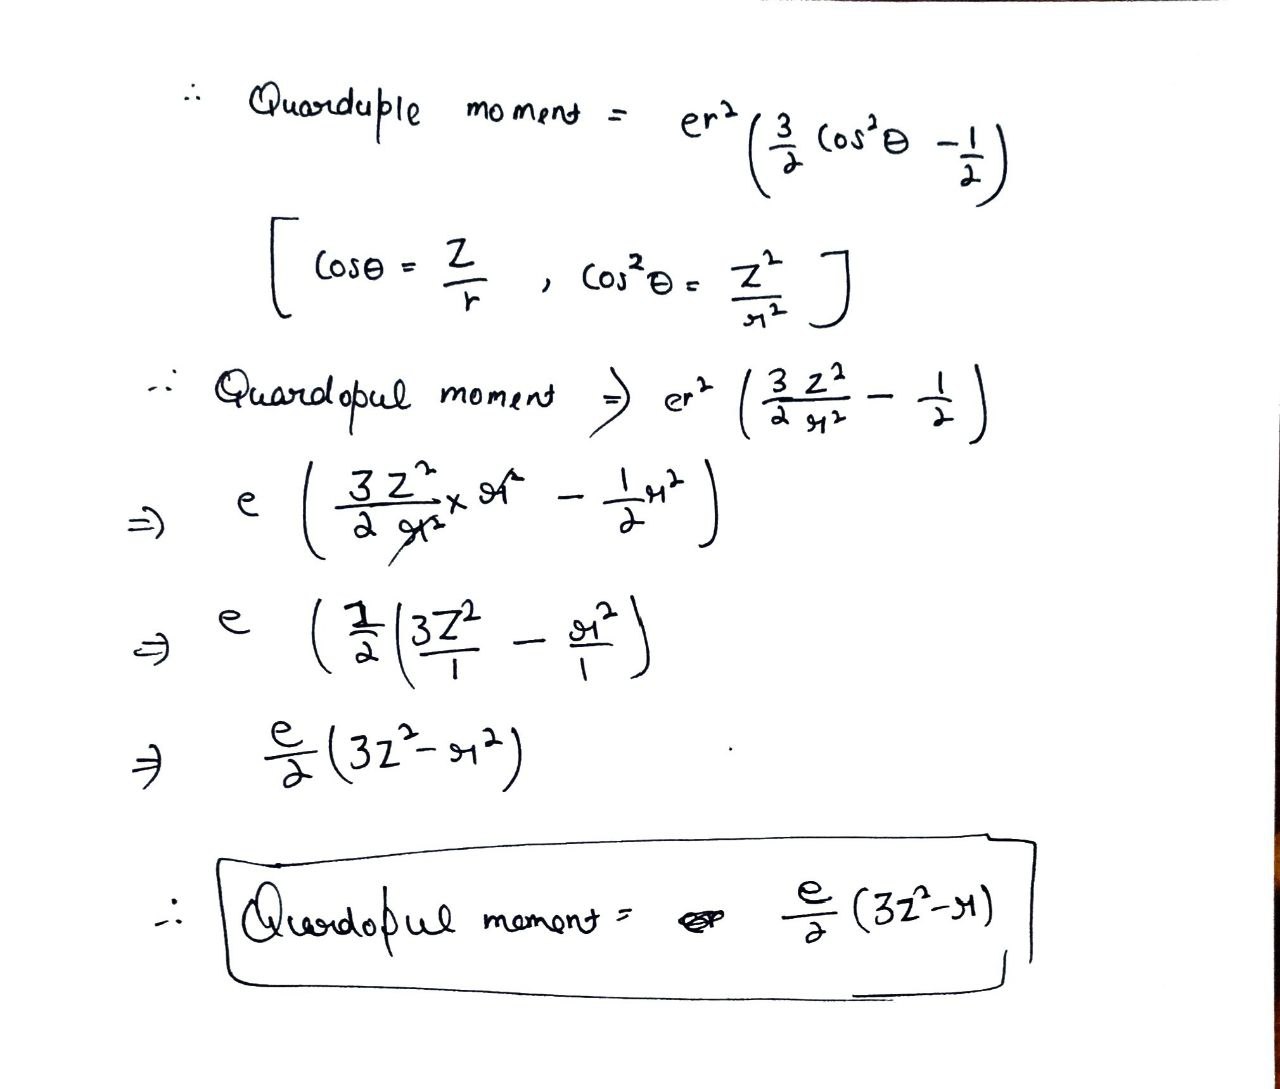 ∴ Quarduple moment = er² (3/2 Cos²θ - 1/2)
[ Cosθ = Z/r , Cos²θ = Z²/r² ]
∴ Quardopul moment ⇒ er² (3/2 Z²/r² - 1/2)
⇒ e (3Z²/2r² × r² - 1/2 r²)
⇒ e (1/2 (3Z²/1 - r²/1)
⇒ e/2 (3Z² - r²)
∴ Quardopul moment = e/2 (3Z² - r)